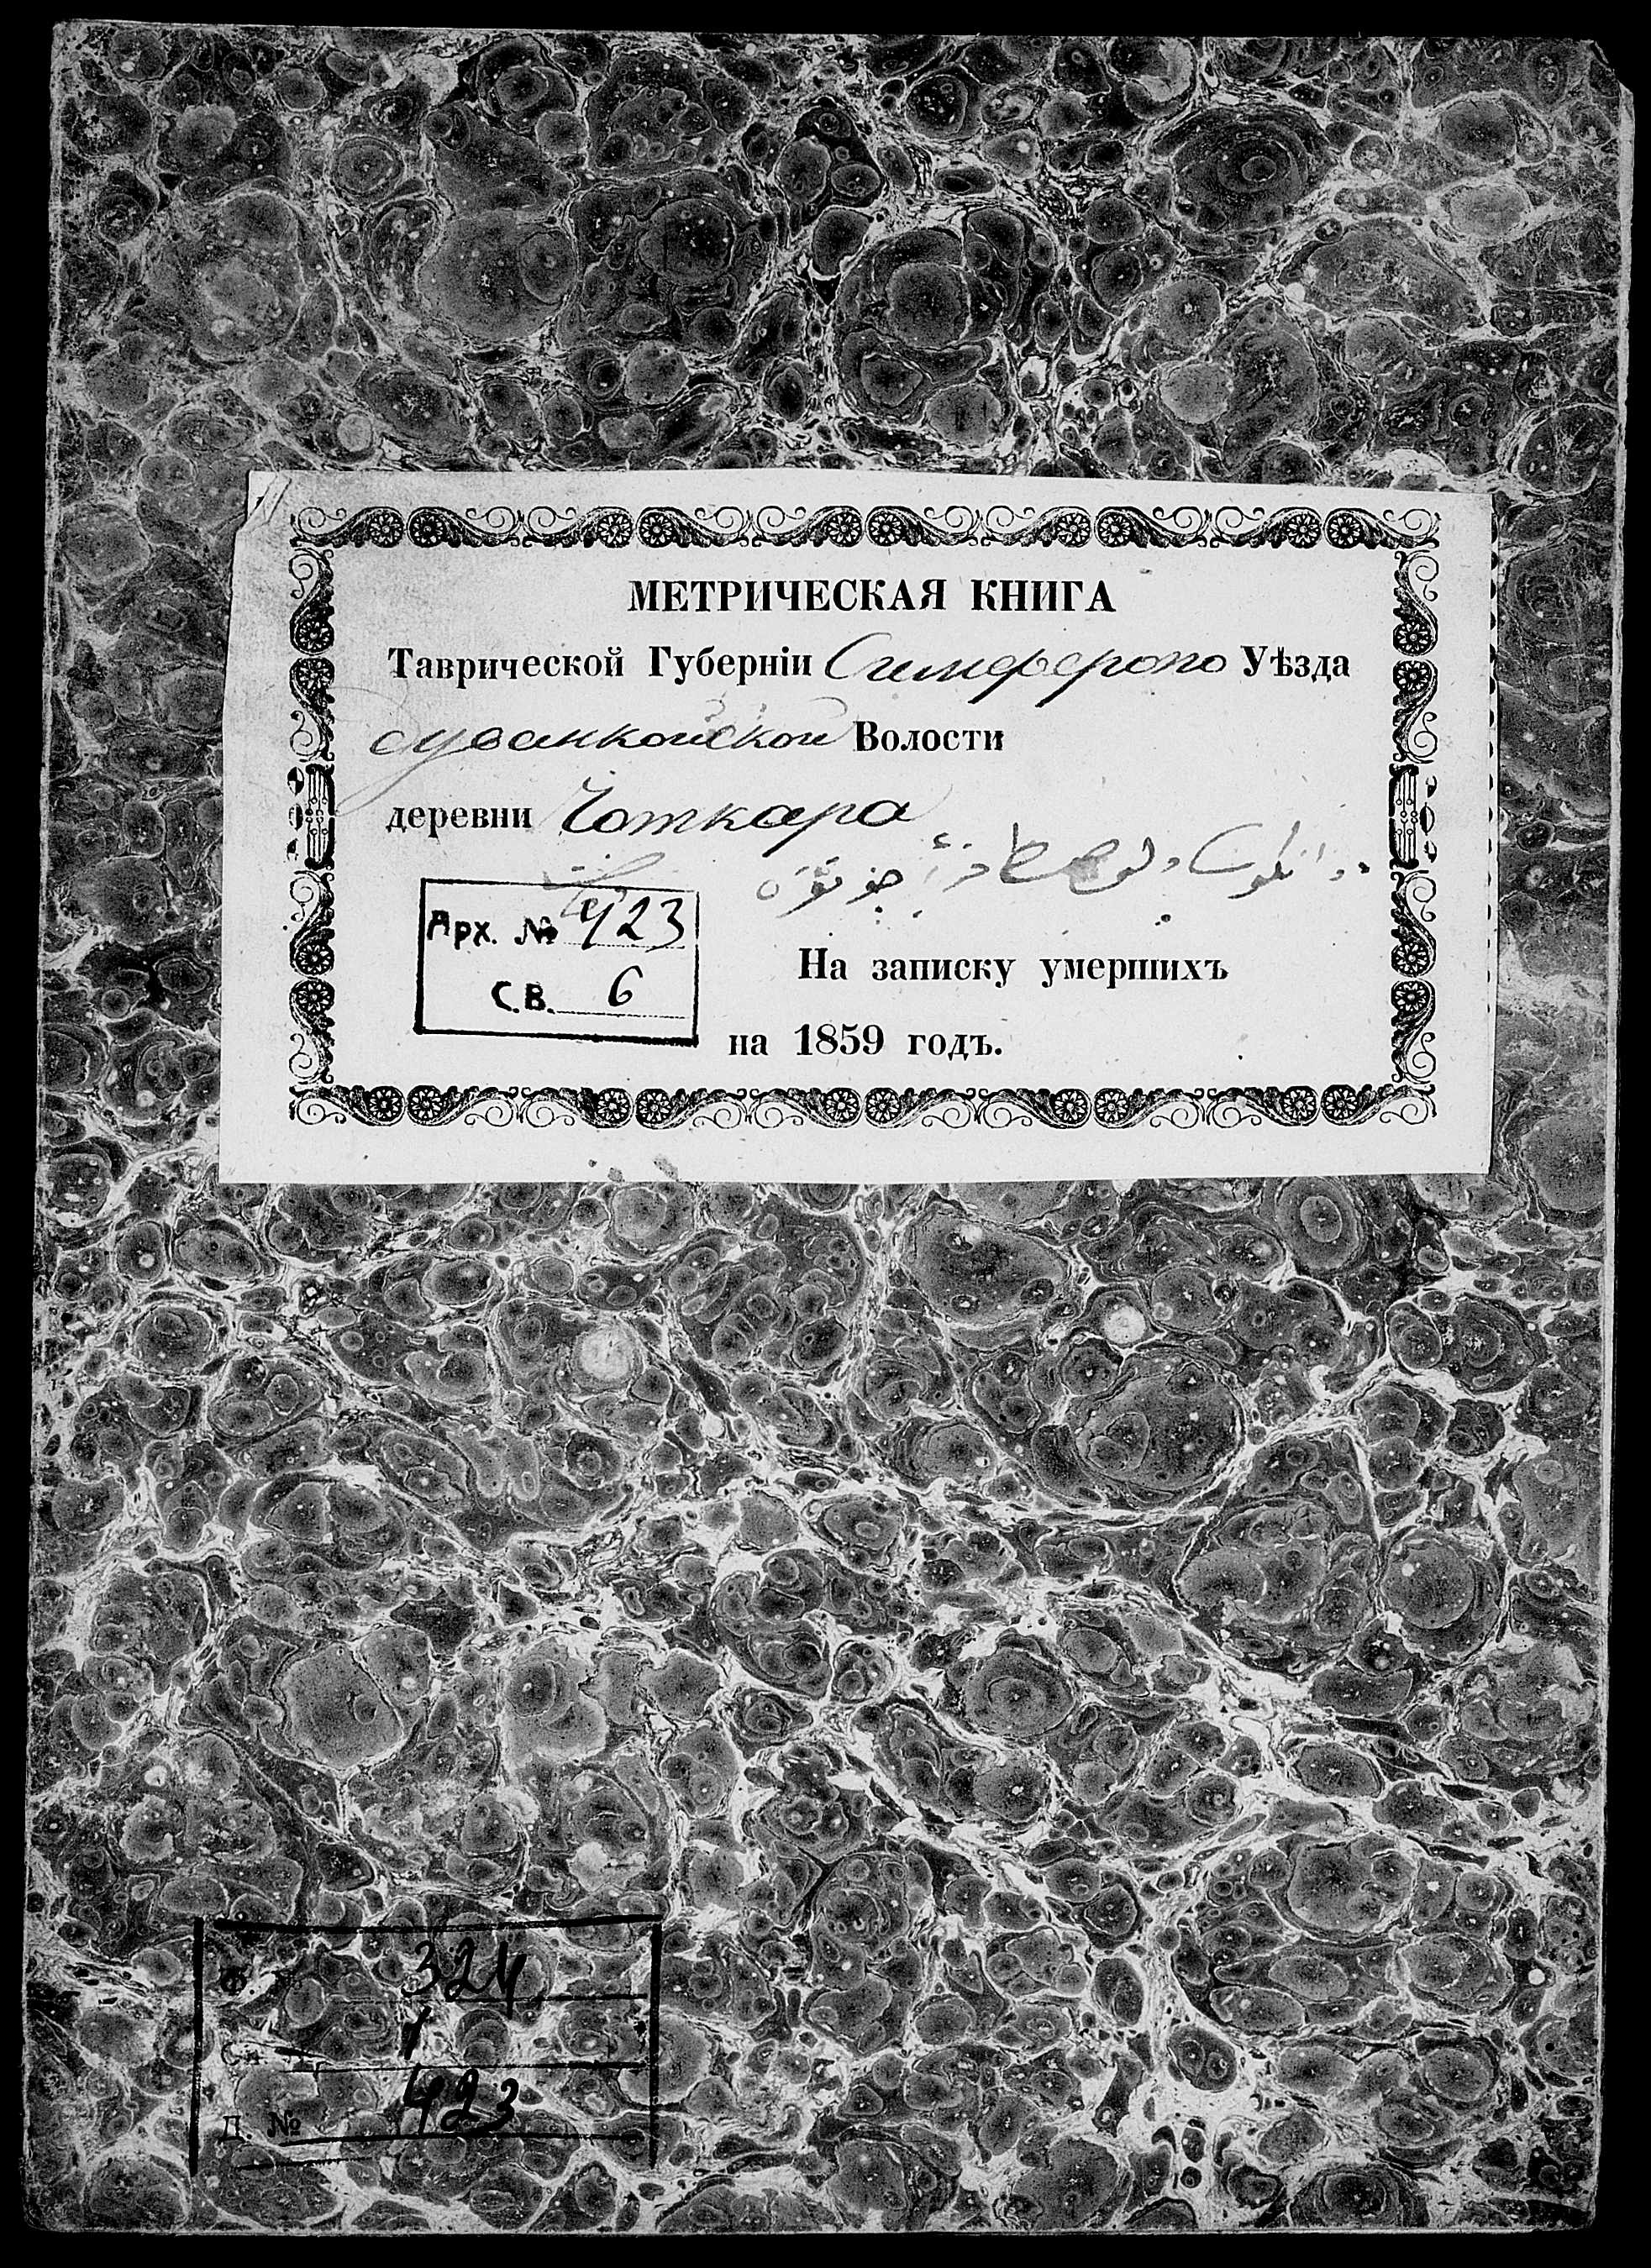 МЕТРИЧЕСКАЯ КНИГА
Таврической Губерніи Симферопо Уѣзда
Волости
деревни Чоткара
Арх. № 423
С.В. 6
На записку умершихъ
на 1859 годъ.
Ф. 324
1
Д. № 423